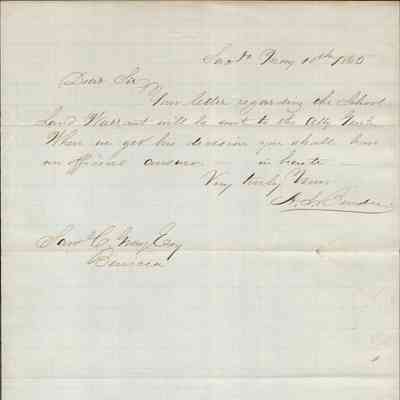 Sacto May 10th 1865
Dear Sir
Your letter regarding the School
Land Warrant will be sent to the Atty Genl.
When we get his decision you shall have
an official answer — in haste —
Very truly Yours
Saml C. Gray Esq
Benicia